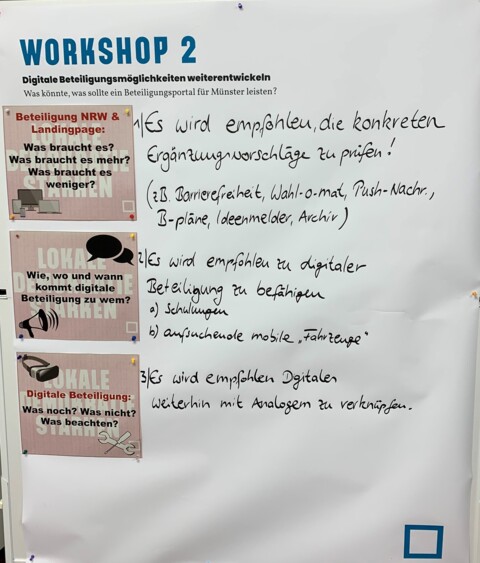 WORKSHOP 2
Digitale Beteiligungsmöglichkeiten weiterentwickeln
Was könnte, was sollte ein Beteiligungsportal für Münster leisten?
Beteiligung NRW &
Landingpage:
Was braucht es?
Was braucht es mehr?
Was braucht es
weniger?
1) Es wird empfohlen, die konkreten
Ergänzungsvorschläge zu prüfen!
(z.B. Barrierefreiheit, Wahl-o-mat, Push-Nachr.,
B-pläne, Ideenmelder, Archiv)
LOKALE
Wie, wo und wann
kommt digitale
Beteiligung zu wem?
STÄRKEN
2) Es wird empfohlen zu digitaler
Beteiligung zu befähigen
a) Schulungen
b) aufsuchende mobile „Fahrzeuge"
LOKALE
Digitale Beteiligung:
Was noch? Was nicht?
Was beachten?
STÄRKEN
3) Es wird empfohlen Digitales
weiterhin mit Analogem zu verknüpfen.